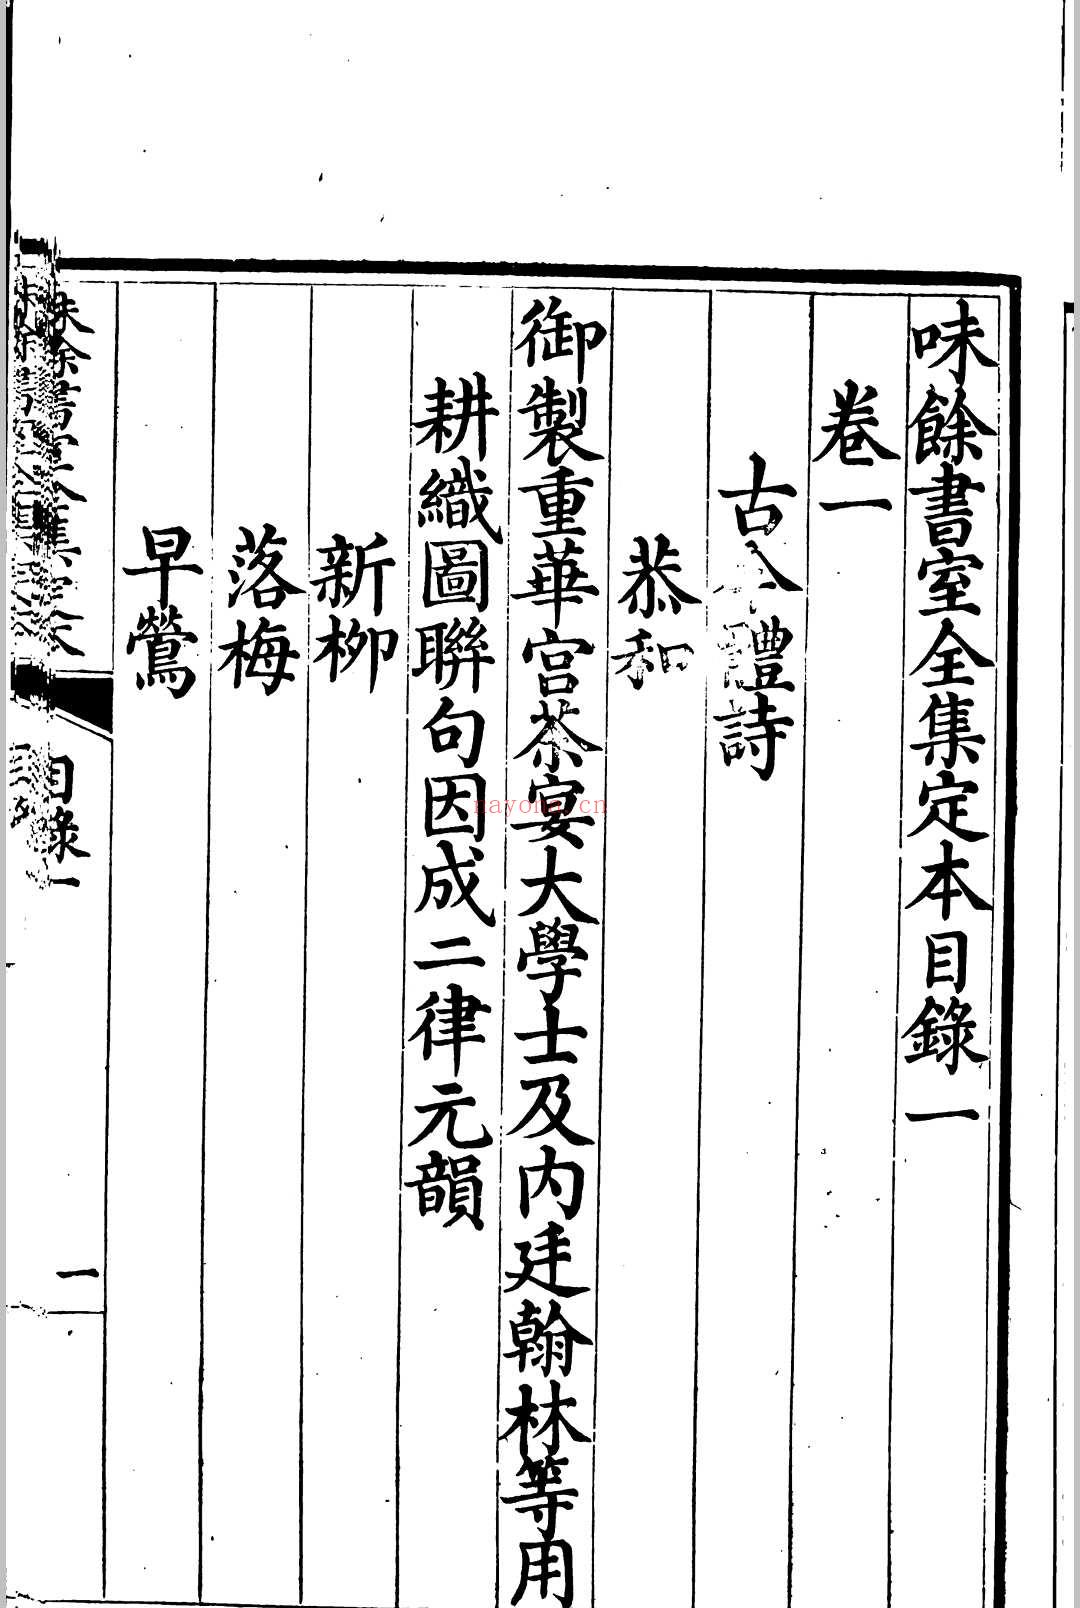 味餘書室全集定本目錄一
卷一
古今體詩
恭和
御製重華宮茶宴大學士及內廷翰林等用
耕織圖聯句因成二律元韻
新柳
落梅
早鶯
目錄一
一
nayona.cn